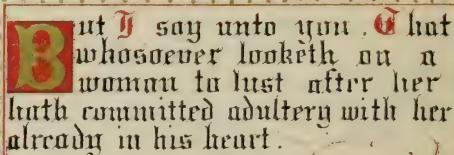 But I say unto you. That
whosoever looketh on a
woman to lust after her
hath committed adultery with her
already in his heart.